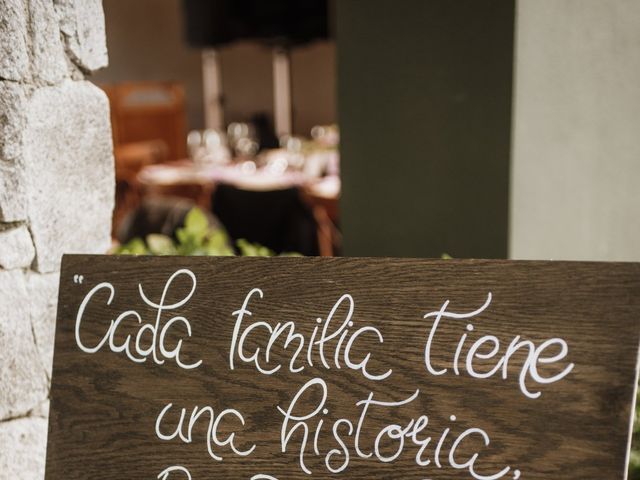 "Cada familia tiene
una historia,